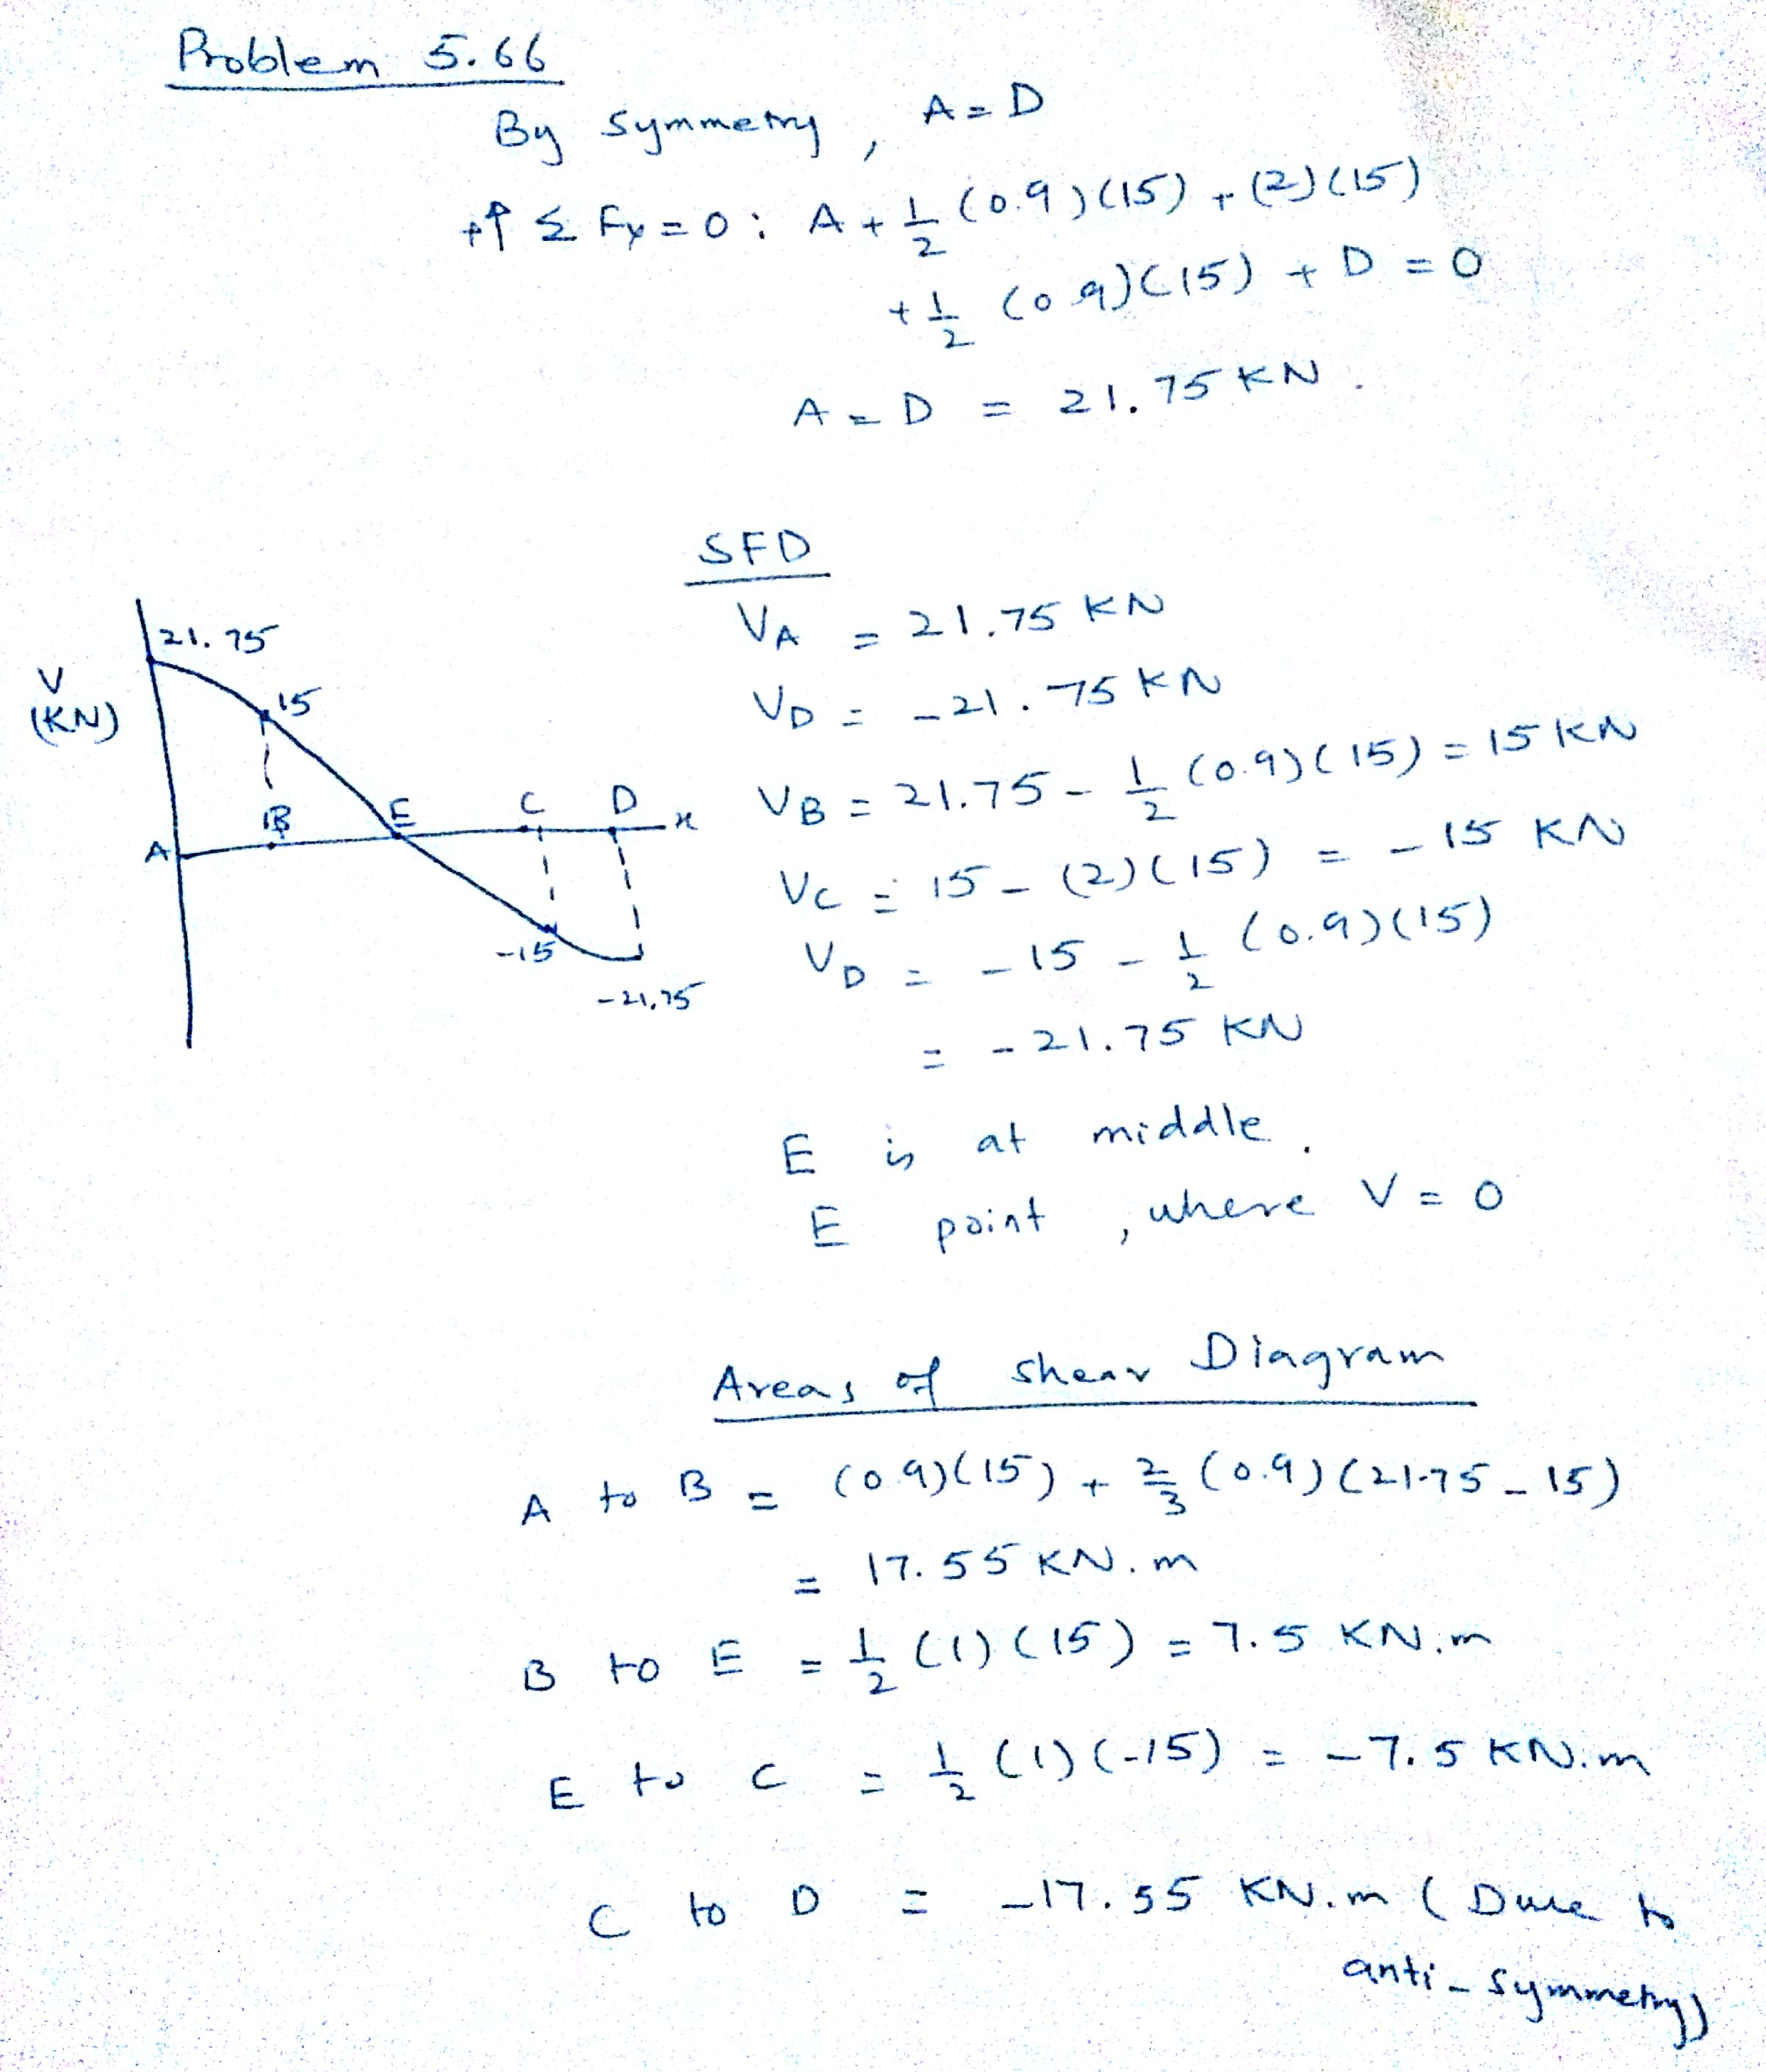 Problem 5.66
By Symmetry, A = D
+↑ Σ Fy = 0 : A + 1/2 (0.9)(15) + (2)(15)
+ 1/2 (0.9)(15) + D = 0
A = D = 21.75 KN.
SFD
VA = 21.75 KN
VD = -21.75 KN
VB = 21.75 - 1/2 (0.9)(15) = 15 KN
VC = 15 - (2)(15) = -15 KN
VD = -15 - 1/2 (0.9)(15)
= -21.75 KN
V
(KN)
21.75
15
A B E C D x
-15
-21.75
E is at middle.
E point, where V = 0
Areas of shear Diagram
A to B = (0.9)(15) + 2/3 (0.9)(21.75 - 15)
= 17.55 KN.m
B to E = 1/2 (1)(15) = 7.5 KN.m
E to C = 1/2 (1)(-15) = -7.5 KN.m
C to D = -17.55 KN.m (Due to
anti-symmetry)